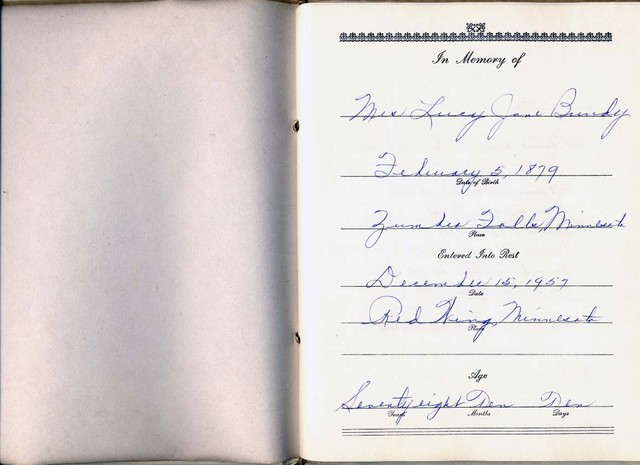 In Memory of
Mrs Lucy Jane Bundy
February 5, 1879
Date of Birth
Zumbro Falls, Minnesota
Place
Entered Into Rest
December 15, 1957
Date
Red Wing, Minnesota
Place
Age
Seventy eight Ten Ten
Years Months Days